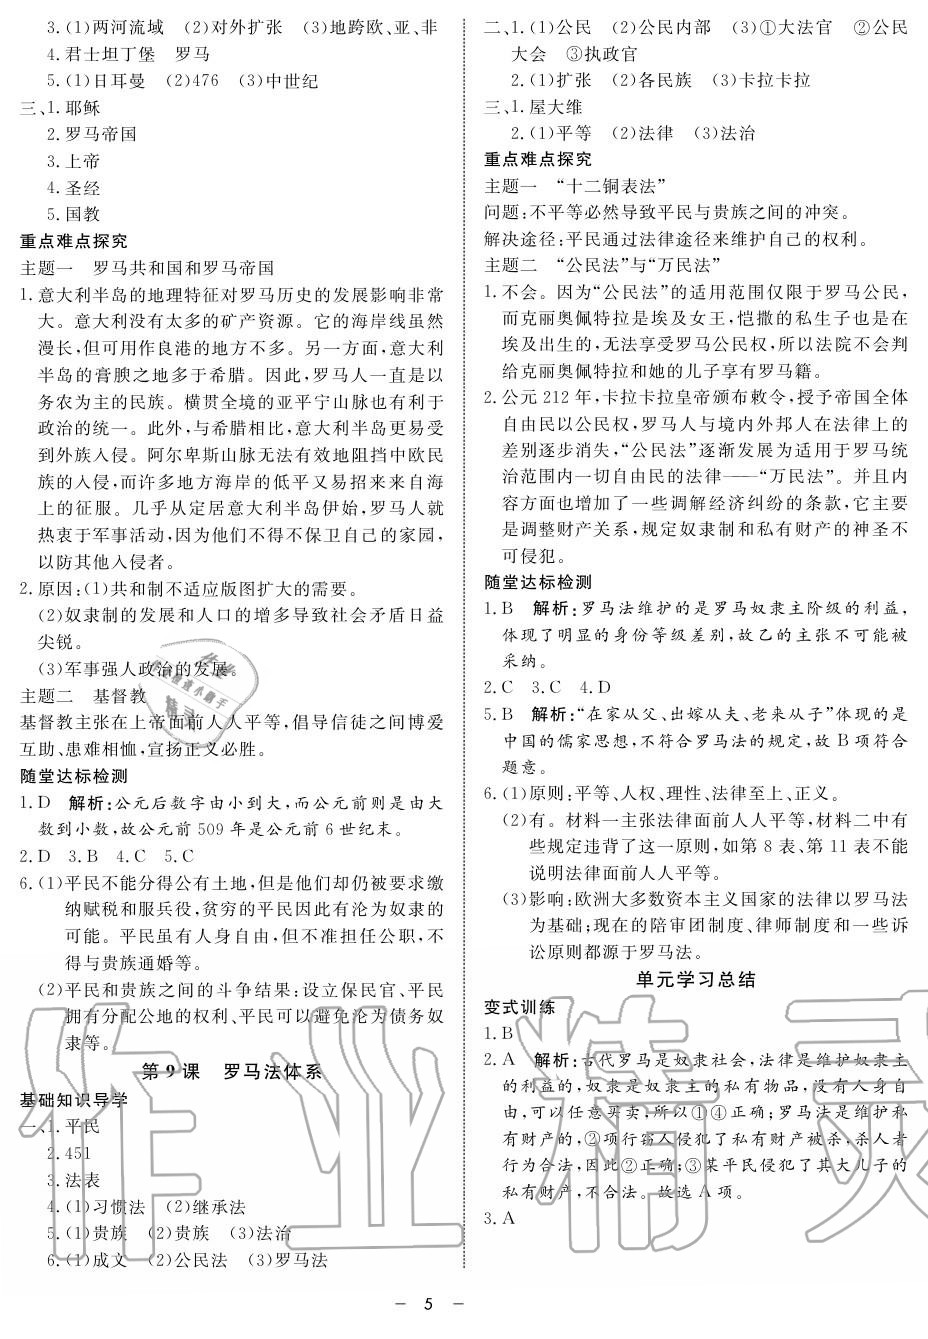 3.(1)两河流域　(2)对外扩张　(3)地跨欧、亚、非
4.君士坦丁堡　罗马
5.(1)日耳曼　(2)476　(3)中世纪
三、1.耶稣
2.罗马帝国
3.上帝
4.圣经
5.国教
重点难点探究
主题一　罗马共和国和罗马帝国
1.意大利半岛的地理特征对罗马历史的发展影响非常
大。意大利没有太多的矿产资源。它的海岸线虽然
漫长,但可用作良港的地方不多。另一方面,意大利
半岛的膏腴之地多于希腊。因此,罗马人一直是以
务农为主的民族。横贯全境的亚平宁山脉也有利于
政治的统一。此外,与希腊相比,意大利半岛更易受
到外族入侵。阿尔卑斯山脉无法有效地阻挡中欧民
族的入侵,而许多地方海岸的低平又易招来来自海
上的征服。几乎从定居意大利半岛伊始,罗马人就
热衷于军事活动,因为他们不得不保卫自己的家园,
以防其他入侵者。
2.原因:(1)共和制不适应版图扩大的需要。
(2)奴隶制的发展和人口的增多导致社会矛盾日益
尖锐。
(3)军事强人政治的发展。
主题二　基督教
基督教主张在上帝面前人人平等,倡导信徒之间博爱
互助、患难相恤,宣扬正义必胜。
随堂达标检测
1.D　解析:公元后数字由小到大,而公元前则是由大
数到小数,故公元前 509 年是公元前 6 世纪末。
2.D　3.B　4.C　5.C
6.(1)平民不能分得公有土地,但是他们却仍被要求缴
纳赋税和服兵役,贫穷的平民因此有沦为奴隶的
可能。平民虽有人身自由,但不准担任公职,不
得与贵族通婚等。
(2)平民和贵族之间的斗争结果:设立保民官、平民
拥有分配公地的权利、平民可以避免沦为债务奴
隶等。
第 9 课　罗马法体系
基础知识导学
一、1.平民
2.451
3.法表
4.(1)习惯法　(2)继承法
5.(1)贵族　(2)贵族　(3)法治
6.(1)成文　(2)公民法　(3)罗马法
二、1.(1)公民　(2)公民内部　(3)①大法官　②公民
大会　③执政官
2.(1)扩张　(2)各民族　(3)卡拉卡拉
三、1.屋大维
2.(1)平等　(2)法律　(3)法治
重点难点探究
主题一　“十二铜表法”
问题:不平等必然导致平民与贵族之间的冲突。
解决途径:平民通过法律途径来维护自己的权利。
主题二　“公民法”与“万民法”
1.不会。因为“公民法”的适用范围仅限于罗马公民,
而克丽奥佩特拉是埃及女王,恺撒的私生子也是在
埃及出生的,无法享受罗马公民权,所以法院不会判
给克丽奥佩特拉和她的儿子享有罗马籍。
2.公元 212 年,卡拉卡拉皇帝颁布敕令,授予帝国全体
自由民以公民权,罗马人与境内外邦人在法律上的
差别逐步消失,“公民法”逐渐发展为适用于罗马统
治范围内一切自由民的法律——“万民法”。并且内
容方面也增加了一些调解经济纠纷的条款,它主要
是调整财产关系,规定奴隶制和私有财产的神圣不
可侵犯。
随堂达标检测
1.B　解析:罗马法维护的是罗马奴隶主阶级的利益,
体现了明显的身份等级差别,故乙的主张不可能被
采纳。
2.C　3.C　4.D
5.B　解析:“在家从父、出嫁从夫、老来从子”体现的是
中国的儒家思想,不符合罗马法的规定,故 B 项符合
题意。
6.(1)原则:平等、人权、理性、法律至上、正义。
(2)有。材料一主张法律面前人人平等,材料二中有
些规定违背了这一原则,如第 8 表、第 11 表不能
说明法律面前人人平等。
(3)影响:欧洲大多数资本主义国家的法律以罗马法
为基础;现在的陪审团制度、律师制度和一些诉
讼原则都源于罗马法。
单元学习总结
变式训练
1.B
2.A　解析:古代罗马是奴隶社会,法律是维护奴隶主
的利益的,奴隶是奴隶主的私有物品,没有人身自
由,可以任意买卖,所以①④正确;罗马法是维护私
有财产的,②项行窃人侵犯了私有财产被杀,杀人者
行为合法,因此②正确;③某平民侵犯了其大儿子的
私有财产,不合法。故选 A 项。
3.A
— 5 —
作业精灵